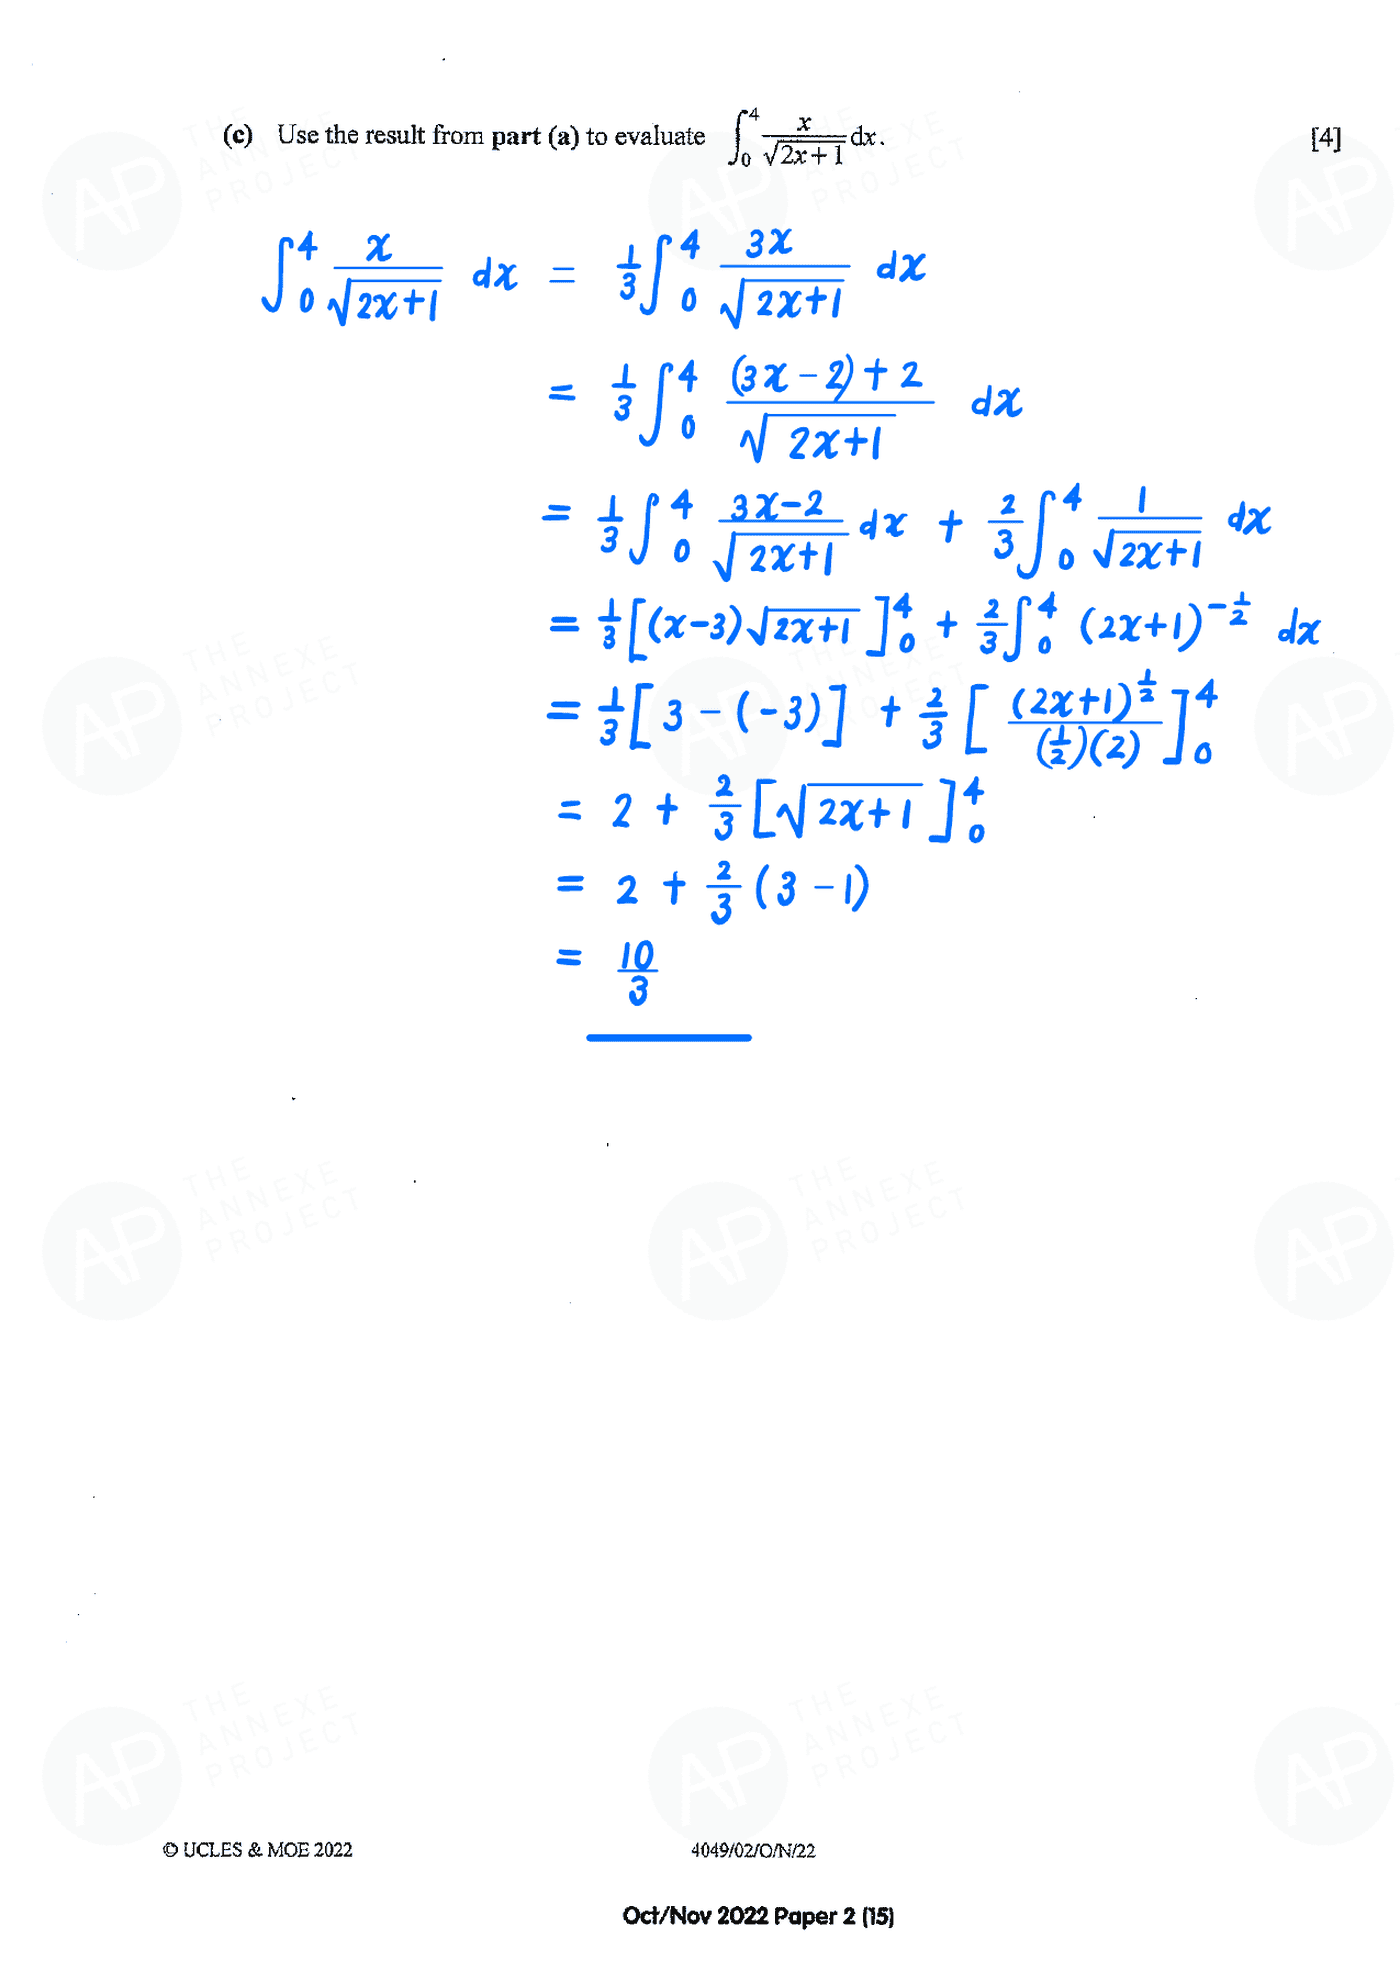 (c) Use the result from part (a) to evaluate ∫₀⁴ x/√(2x+1) dx. [4]
∫₀⁴ x/√(2x+1) dx = 1/3 ∫₀⁴ 3x/√(2x+1) dx
= 1/3 ∫₀⁴ ((3x-2)+2)/√(2x+1) dx
= 1/3 ∫₀⁴ (3x-2)/√(2x+1) dx + 2/3 ∫₀⁴ 1/√(2x+1) dx
= 1/3 [(x-3)√(2x+1)]₀⁴ + 2/3 ∫₀⁴ (2x+1)^(-1/2) dx
= 1/3 [3-(-3)] + 2/3 [(2x+1)^(1/2)/((1/2)(2))]₀⁴
= 2 + 2/3 [√(2x+1)]₀⁴
= 2 + 2/3 (3-1)
= 10/3
© UCLES & MOE 2022 4049/02/O/N/22
Oct/Nov 2022 Paper 2 (15)
AP THE ANNEXE PROJECT